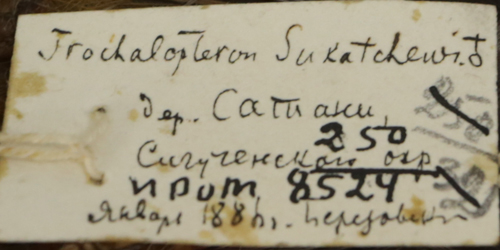 Trochalopteron Sukatchewi. ♁
дер. Сатани,
250
Сигученской окр
прот 8524
Январь 1886 г. Березовский